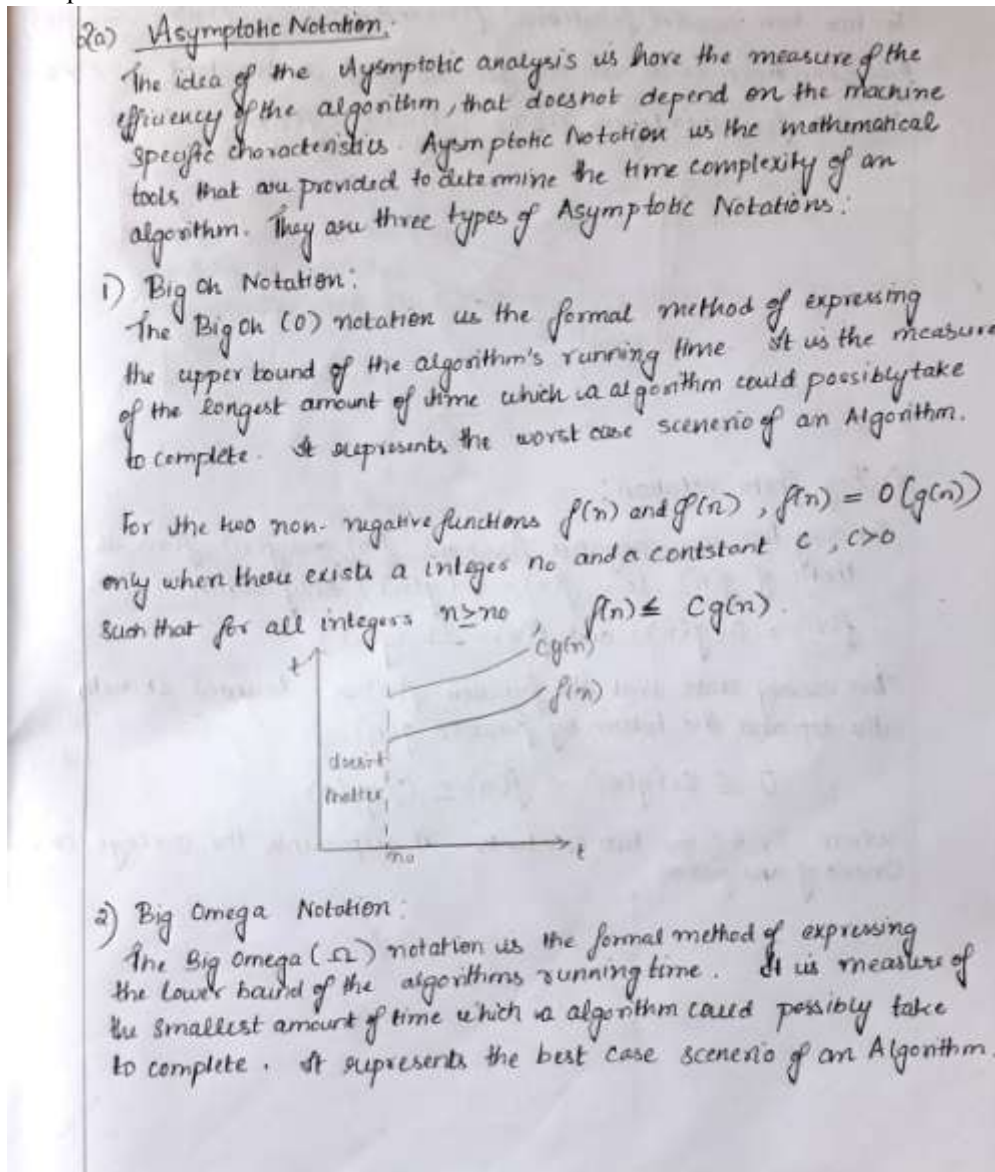 2a) Asymptotic Notation:
The idea of the Aysmptotic analysis is have the measure of the
efficiency of the algorithm, that doesnot depend on the machine
specific characteristics. Aysmptotic Notation is the mathematical
tools that are provided to determine the time complexity of an
algorithm. They are three types of Asymptotic Notations:
1) Big Oh Notation:
The Big Oh (O) notation is the formal method of expressing
the upper bound of the algorithm's running time It is the measure
of the longest amount of time which a algorithm could possibly take
to complete. It represents the worst case scenerio of an Algorithm.
For the two non-negative functions f(n) and g(n), f(n) = O(g(n))
only when there exists a integer n0 and a contstant C, C>0
such that for all integers n≥n0, f(n) ≤ Cg(n).
t
Cg(n)
f(n)
doesn't
matter
n0
t
2) Big Omega Notation:
The Big Omega (Ω) notation is the formal method of expressing
the lower bound of the algorithms running time. It is measure of
the smallest amount of time which a algorithm could possibly take
to complete. It represents the best case scenerio of an Algorithm.